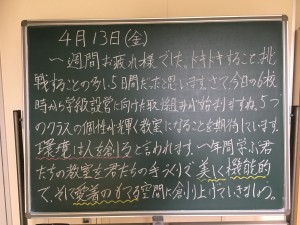 4月13日(金)
一週間お疲れ様でした。ドキドキすること、挑
戦することの多い5日間だったと思います。さて、今日の6校
時から学級設営に向けた取り組みが始まりますね。5つ
のクラスの個性が輝く教室になることを期待しています。
環境は人を創ると言われます。一年間学ぶ君
たちの教室を君たちの手づくりで美しく機能的
で、そして愛着のもてる空間に創り上げていきましょう。